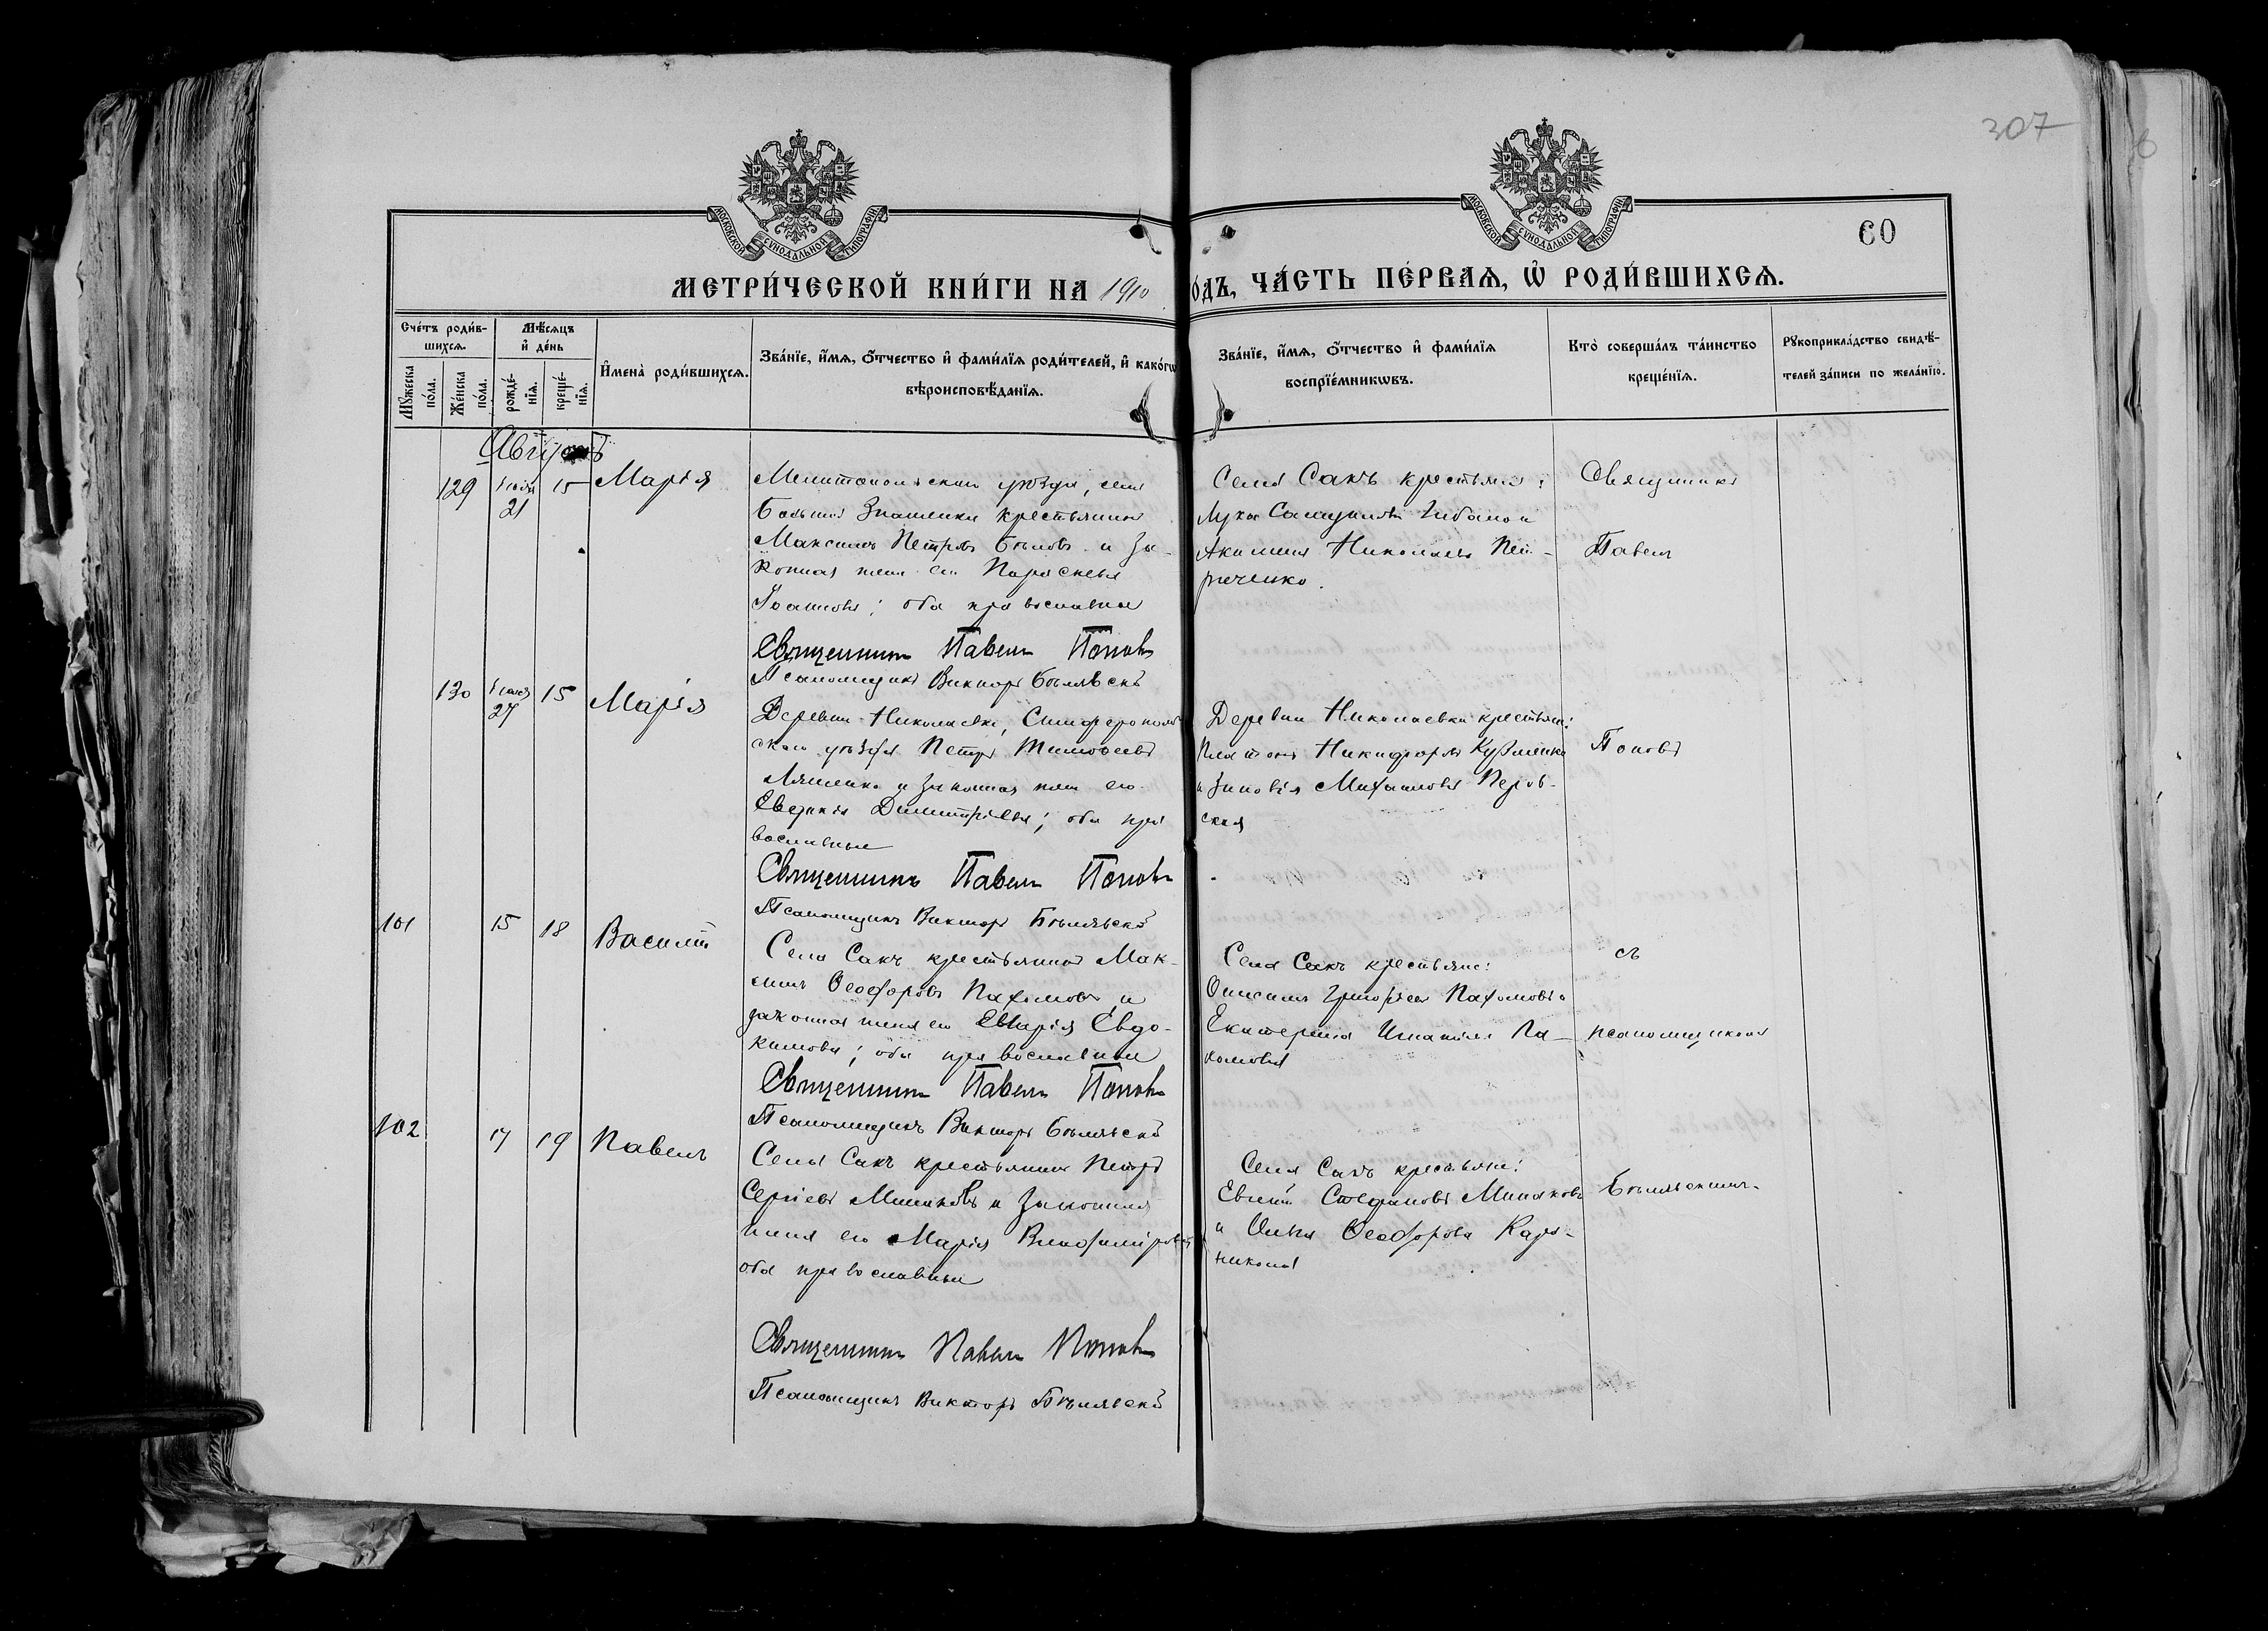 307
6
МОСКОВСКОЙ СѴНОДАЛЬНОЙ ТИПОГРАФІИ
МОСКОВСКОЙ СѴНОДАЛЬНОЙ ТИПОГРАФІИ
60
МЕТРИ́ЧЕСКОЙ КНИ́ГИ НА 1910
О́ДЪ, ЧА́СТЬ ПЕ́РВАѦ, Ѽ РОДИ́ВШИХСѦ.
Сче́тъ роди́в-
шихсѧ.
Мꙋ́жеска по́ла.
Же́нска по́ла.
Мѣ́сѧцъ
и҆ де́нь
рожде́-
нїѧ.
креще́-
нїѧ.
И҆мена̀ роди́вшихсѧ.
Зва́нїе, и҆́мѧ, ѻ҆́тчество и҆ фами́лїѧ роди́телей, и҆ како́гѡ
вѣроисповѣ́данїѧ.
Зва́нїе, и҆́мѧ, ѻ҆́тчество и҆ фами́лїѧ
воспрїе́мникѡвъ.
Кто̀ соверша́лъ та́инство
креще́нїѧ.
Рꙋкоприкла́дство свидѣ́-
телей за́писи по жела́нїю.
Августъ
129
21
15
Марія
Мелитопольскаго уѣзда, села
Большой Знаменки крестьянинъ
Максимъ Петровъ Бѣловъ и за-
конная жена его Параскева
Іоаннова; оба православные
Священникъ Павелъ Поповъ
Псаломщикъ Викторъ Бѣлявскій
Села Сакъ крестьяне:
Лука Самуиловъ и
Акилина Николаева Пет-
риченко.
Священникъ
Павелъ
130
27
15
Марія
Деревни Николаевки, Симферополь
скаго уѣзда Петръ Тимофеевъ
Ляшенко и законная жена его
Евдокія Димитріева; оба пра
вославные
Священникъ Павелъ Поповъ
Псаломщикъ Викторъ Бѣлявскій
Деревни Николаевки крестьяне:
Платонъ Никифоровъ Кузменко
и Зиновія Михаилова Перов-
ская
Поповъ
101
15
18
Василій
Села Сакъ крестьянинъ Мак-
симъ Ѳеодоровъ Пахомовъ и
законная жена его Марія Евдо-
кимова; оба православные
Священникъ Павелъ Поповъ
Псаломщикъ Викторъ Бѣлявскій
Села Сакъ крестьяне:
Онисимъ Григорьевъ Пахомовъ и
Екатерина Игнатьева Па-
хомова
съ
псаломщикомъ
102
17
19
Павелъ
Села Сакъ крестьянинъ Петръ
Сергіевъ Минаковъ и законная
жена его Марія Владимірова
оба православные
Священникъ Павелъ Поповъ
Псаломщикъ Викторъ Бѣлявскій
Села Сакъ крестьяне:
Евсій Стефановъ Минаковъ
и Ольга Ѳеодорова Кара-
никола
Бѣлявскимъ.